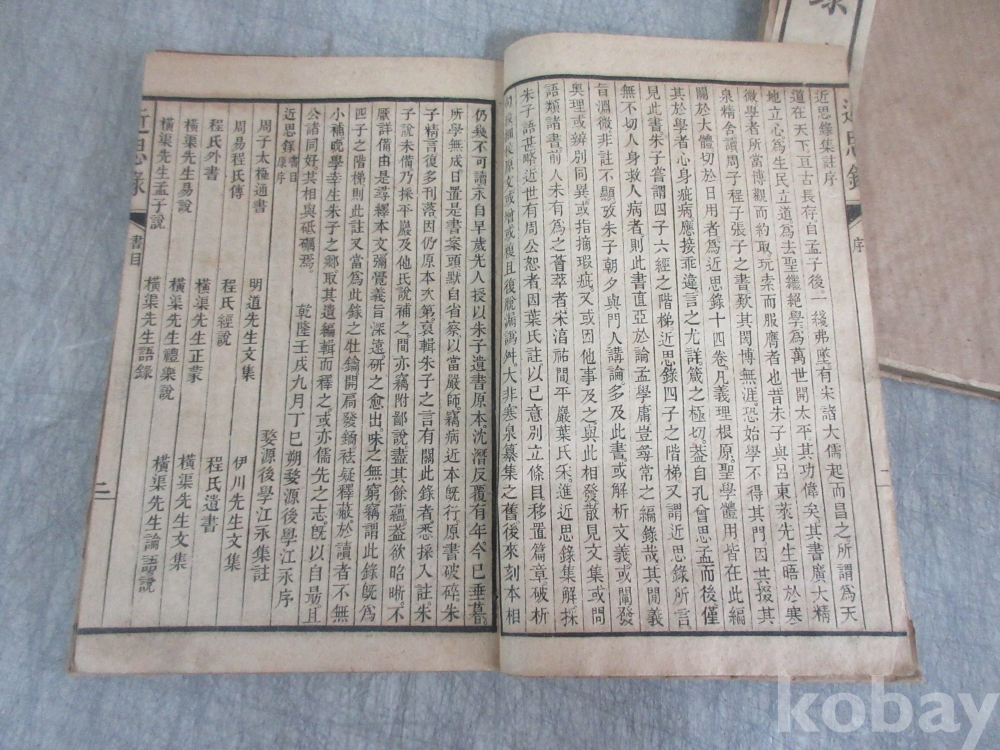 近思錄集註序
道在天下亘古長存自孟子後一綫弗墜有宋諸大儒起而昌之所謂爲天
地立心爲生民立道爲去聖繼絕學爲萬世開太平其功偉矣其書廣大精
微學者所當博觀而約取玩索而服膺者也昔朱子與呂東萊先生晤於寒
泉精舍讀周子程子張子之書歎其閎博無涯恐始學不得其門因共掇其
關於大體切於日用者爲近思錄十四卷凡義理根原聖學體用皆在此編
其於學者心身疵病應接乖違言之尤詳箴之極切蓋自孔曾思孟而後僅
見此書朱子嘗謂四子六經之階梯近思錄四子之階梯又謂近思錄所言
無不切人身救人病者則此書直亞於論孟學庸豈尋常之編錄哉其間義
旨淵微非註不顯攷朱子朝夕與門人講論多及此書或解析文義或闡發
奧理或辨別同異或指摘瑕疵又或因他事及之與此相發散見文集或問
語類諸書前人未有爲之薈萃者宋淳祐間平巖葉氏采進近思錄集解採
朱子語甚略近世有周公恕者因葉氏註以已意別立條目移置篇章破析
句段細校原文或增或複且復脫漏譌舛大非寒泉纂集之舊後來刻本相
仍幾不可讀永自早歲先人授以朱子遺書原本沈潛反覆有年今已垂暮
所學無成日置是書案頭默自省察以當嚴師竊病近本旣行原書破碎朱
子精言復多刊落因仍原本次第裒輯朱子之言有關此錄者悉採入註朱
子說未備乃採平巖及他氏說補之間亦竊附鄙說盡其餘蘊蓋欲昭晰不
厭詳備由是尋繹本文彌覺義旨深遠研之愈出味之無窮竊謂此錄旣爲
四子之階梯則此註又當爲此錄之牡鑰開扃發鐍袪疑釋蔽於讀者不無
小補晩學幸生朱子之鄉取其遺編輯而釋之或亦儒先之志旣以自勗且
公諸同好共相與砥礪焉 乾隆壬戌九月丁巳朔婺源後學江永序
近思錄 書目 原序 婺源後學江永集註
周子太極通書 明道先生文集 伊川先生文集
周易程氏傳 程氏經說 程氏遺書
程氏外書 橫渠先生正蒙 橫渠先生文集
橫渠先生易說 橫渠先生禮樂說 橫渠先生論語說
橫渠先生孟子說 橫渠先生語錄
近思錄 序 一
近思錄 書目 二
kobay